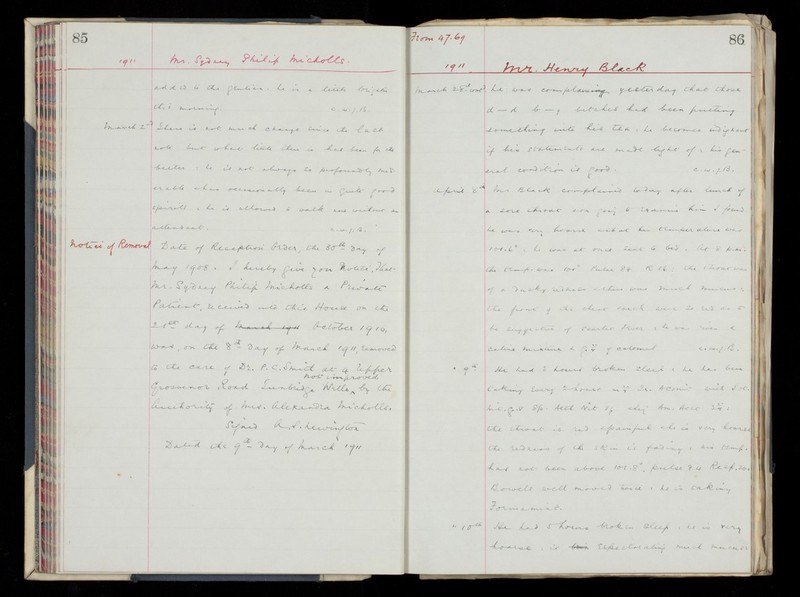 85
1911 Mr. Sydney Philip Nicholls.
added to the . he is a little brighter
this morning.
March 2nd There is not much change since the last
note but what little there is has been for the
better : he is not always so profoundly mis-
erable & has occasionally been in quite good
spirits : he is allowed to walk out without an
attendant.
Notice of Removal Date of Reception Order, the 30th day of
May 1908. I hereby give you Notice, that
Mr Sydney Philip Nicholls a Private
Patient, received into this House on the
20th day of March 1911 October 1910,
was, on the 8th Day of March 1911, removed
not improved
to the care of Dr. P. C. Smith at 4 Upper
Grosvenor Road Tunbridge Wells, by the
Authority of Mrs. Alexandra Nicholls.
Signed H. Newington
Dated the 9th Day of March 1911
From 47.69
86
1911 Mr. Henry Black
March 28th he was complaining yesterday that those
d—d b—y bitches had been putting
something into his tea : he becomes indignant
if his statements are made light of : his gen-
eral condition is good.
April 8th Mr Black complained today after lunch of
a sore throat & on going to examine him I found
he was very hoarse & that his temperature was
: he was at once sent to bed. At 6 p.m.
the temp. was 100° Pulse 84 R. 16 : the throat was
of a dusky redness & there was much mucus :
the front of the chest was so red as to
be suggestive of scarlet fever : he was given a
of calomel
" 9th He had 2 hours broken sleep : he has been
taking every 2 hours
the throat is red & painful & he is very hoarse
the redness of the skin is fading : his temp.
has not been above , pulse 84 Resp. 20
Bowels well moved twice : he is taking
Formamint.
" 10th He had 5 hours broken sleep : he is very
hoarse : is expectorating much mucus